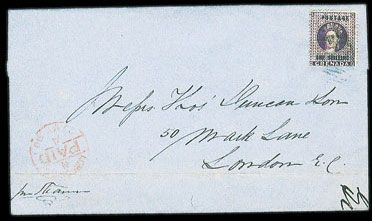 POSTAGE
ONE SHILLING
GRENADA
Messrs Thos Duncan Son
50 Mark Lane
London E.C
PAID
per